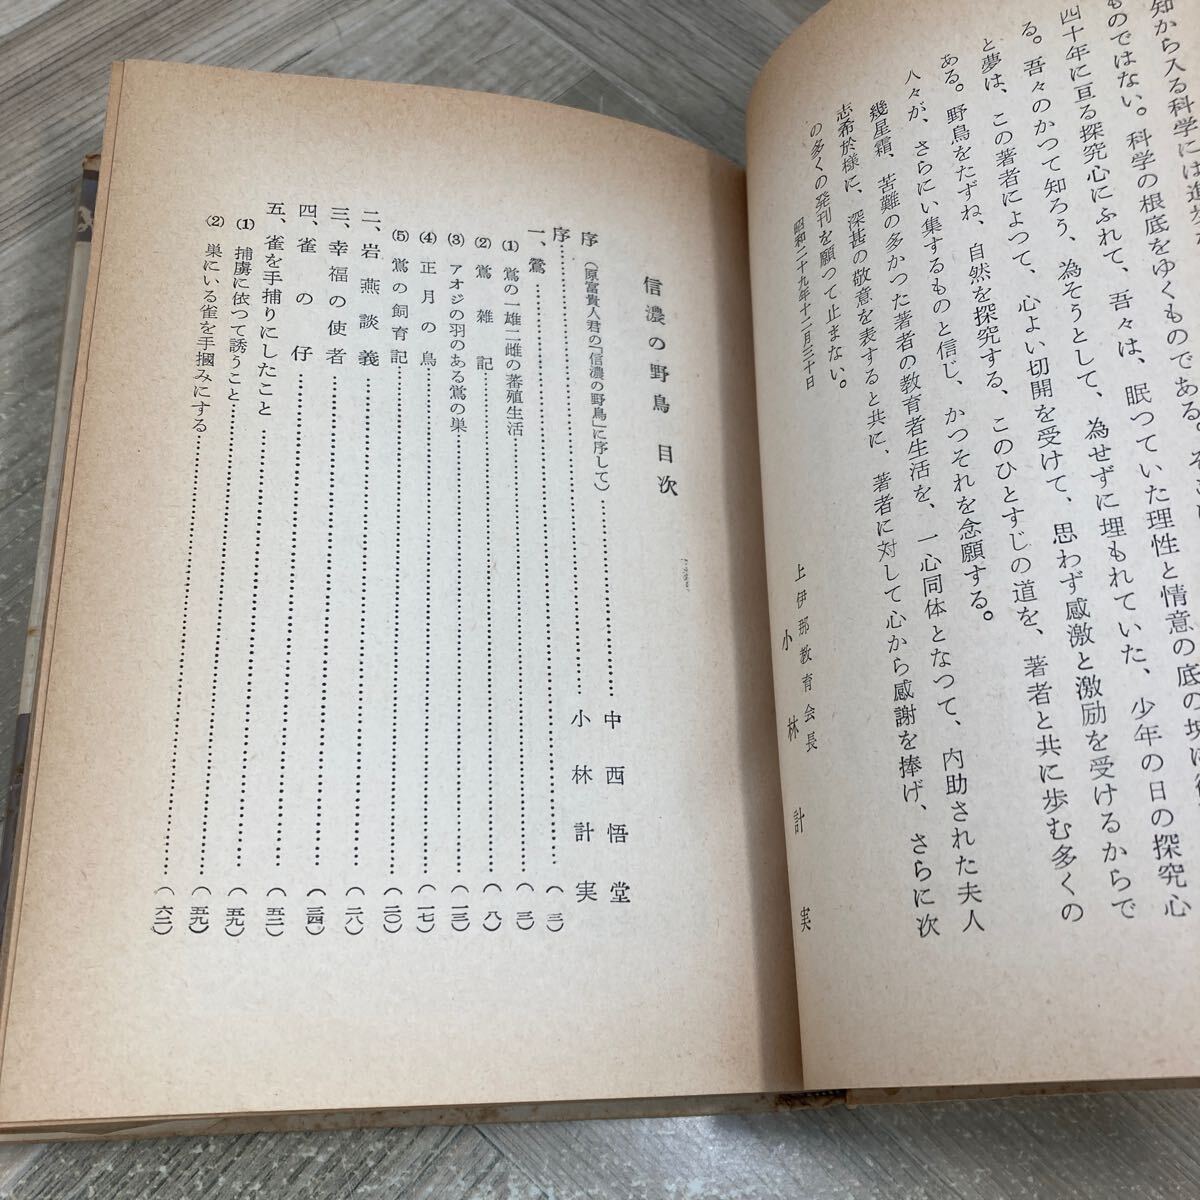 知から入る科学には進
ものではない。科学の根底をゆくものである。
四十年に亘る探究心にふれて、吾々は、眠つていた理性と情意の底の塊に
る。吾々のかつて知ろう、為そうとして、為せずに埋もれていた、少年の日の探究心
と夢は、この著者によつて、心よい切開を受けて、思わず感激と激励を受けるからで
ある。野鳥をたずね、自然を探究する、このひとすじの道を、著者と共に歩む多くの
人々が、さらにい集するものと信じ、かつそれを念願する。
幾星霜、苦難の多かつた著者の教育者生活を、一心同体となつて、内助された夫人
志希於様に、深甚の敬意を表すると共に、著者に対して心から感謝を捧げ、さらに次
の多くの発刊を願つて止まない。
昭和二十九年十二月三十日
上伊那教育会長
小林計実
信濃の野鳥 目次
序(原富貴人君の「信濃の野鳥」に序して)……中西悟堂
序……小林計実
一、鶯……(一)
(1) 鶯の一雄二雌の蕃殖生活……(三)
(2) 鶯雑記……(八)
(3) アオジの羽のある鶯の巣……(一三)
(4) 正月の鳥……(一七)
(5) 鶯の飼育記……(二〇)
二、岩燕談義……(二八)
三、幸福の使者……(三四)
四、雀の仔……(五二)
五、雀を手捕りにしたこと……(五九)
(1) 捕虜に依つて誘うこと……(五九)
(2) 巣にいる雀を手摑みにする……(六二)